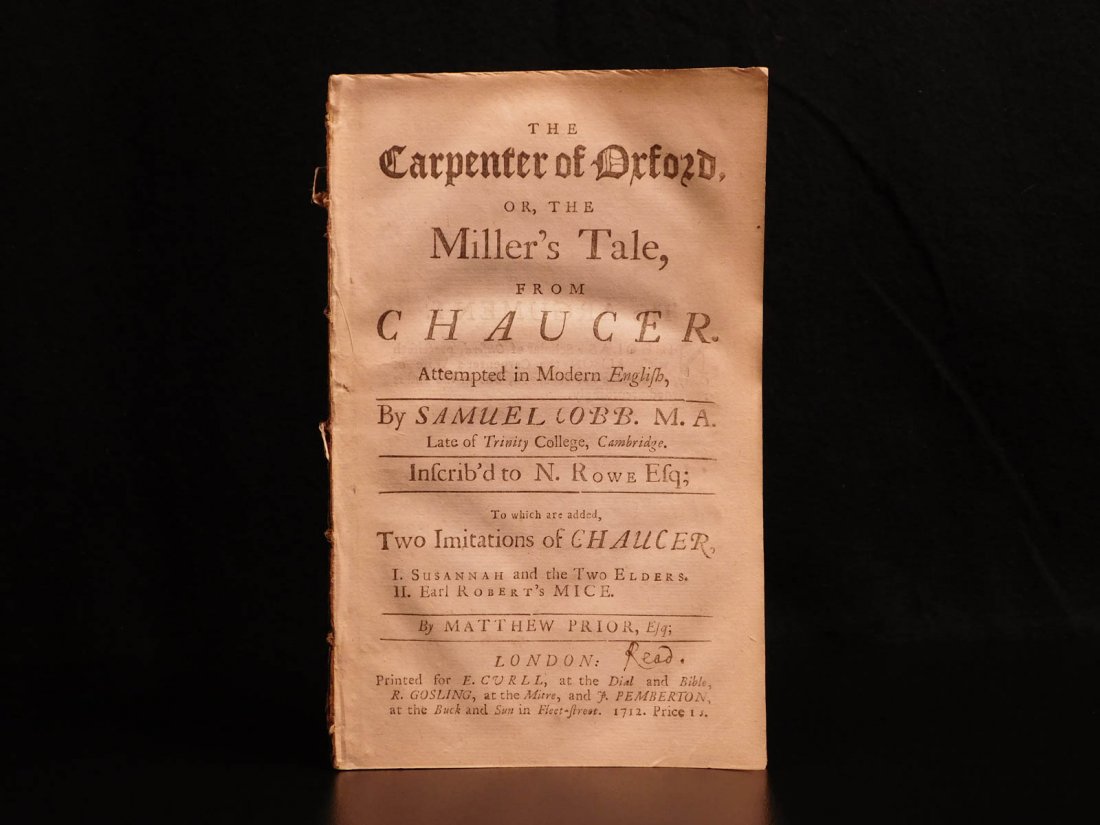 THE
Carpenter of Oxford,
OR, THE
Miller's Tale,
FROM
CHAUCER.
Attempted in Modern Engliſh,
By SAMUEL COBB. M. A.
Late of Trinity College, Cambridge.
Inſcrib'd to N. ROWE Eſq;
To which are added,
Two Imitations of CHAUCER,
I. SUSANNAH and the Two ELDERS.
II. Earl ROBERT's MICE.
By MATTHEW PRIOR, Eſq;
LONDON: Read.
Printed for E. CURLL, at the Dial and Bible,
R. GOSLING, at the Mitre, and J. PEMBERTON,
at the Buck and Sun in Fleet-ſtreet. 1712. Price 1 s.